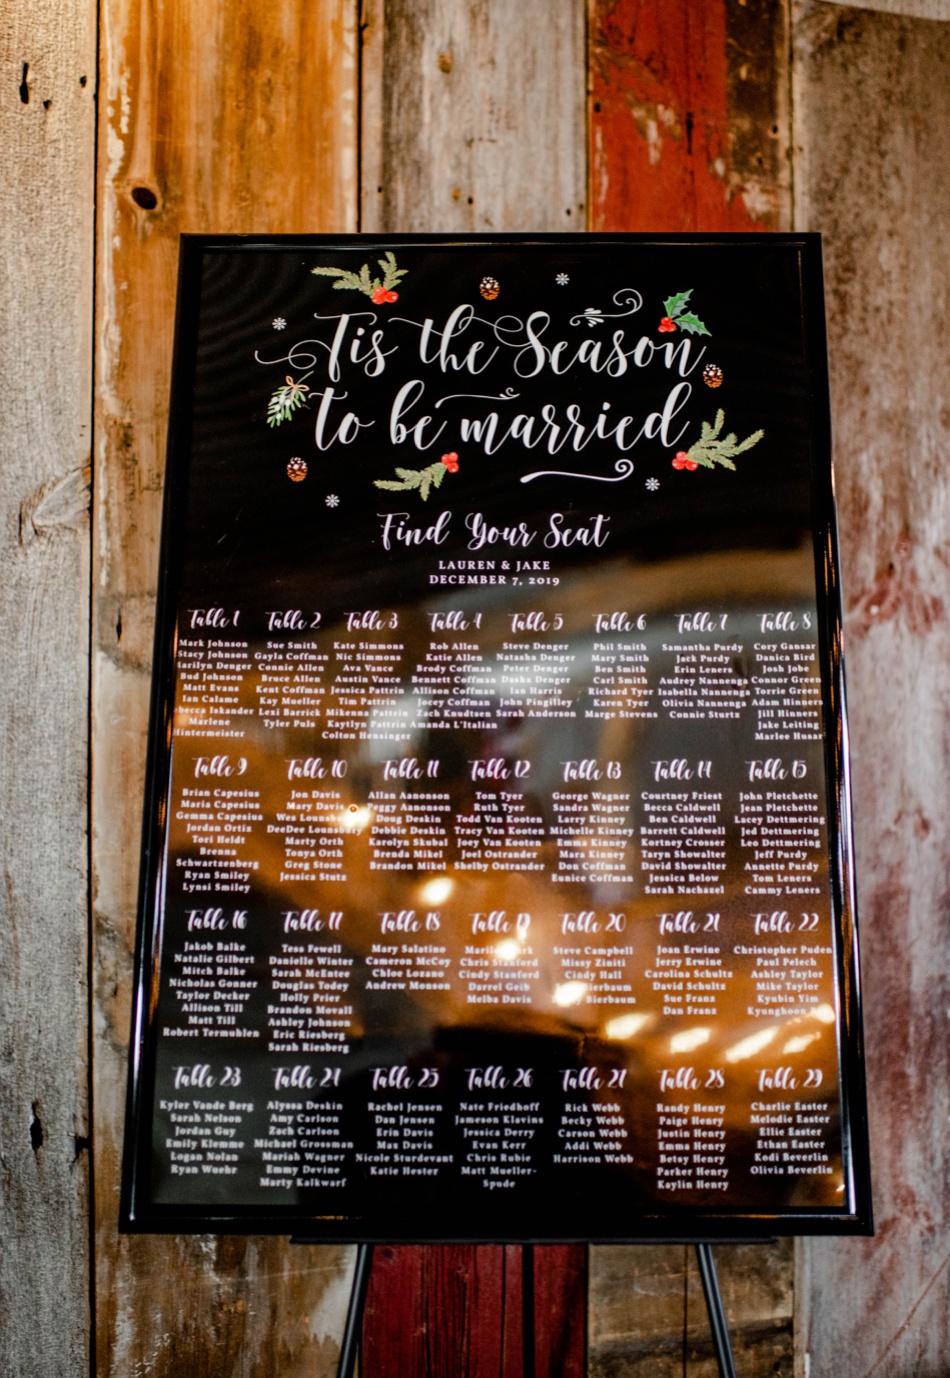 Tis the Season
to be married
Find Your Seat
LAUREN & JAKE
DECEMBER 7, 2019
Table 1
Mark Johnson
Stacy Johnson
Marilyn Denger
Bud Johnson
Matt Evans
Ian Calame
Iskander
Marlene
Table 2
Sue Smith
Gayla Coffman
Connie Allen
Bruce Allen
Kent Coffman
Kay Mueller
Lexi Barrick
Tyler Puls
Table 3
Kate Simmons
Nic Simmons
Ava Vance
Austin Vance
Jessica Pattrin
Tim Pattrin
Mikenna Pattrin
Kaytlyn Pattrin
Colton Hensinger
Table 4
Rob Allen
Katie Allen
Brody Coffman
Bennett Coffman
Allison Coffman
Jocey Coffman
Zach Knudtsen
Amanda L'Italian
Table 5
Steve Denger
Natasha Denger
Peter Denger
Dasha Denger
Ian Harris
John Pingilley
Sarah Anderson
Table 6
Phil Smith
Mary Smith
Ben Smith
Carl Smith
Richard Tyer
Karen Tyer
Marge Stevens
Table 7
Samantha Purdy
Jack Purdy
Erin Leners
Audrey Nannenga
Isabella Nannenga
Olivia Nannenga
Connie Sturtz
Table 8
Cory Gansar
Danica Bird
Josh Jobe
Connor Green
Torrie Green
Adam Hinners
Jill Hinners
Jake Leiting
Marlee Husar
Table 9
Brian Capesius
Maria Capesius
Gemma Capesius
Jordan Ortiz
Tori Heldt
Brenna
Schwartzenberg
Ryan Smiley
Lynsi Smiley
Table 10
Jon Davis
Mary Davis
Wes Lounsbury
DeeDee Lounsbury
Marty Orth
Tonya Orth
Greg Stone
Jessica Stutz
Table 11
Allan Aanonson
Peggy Aanonson
Doug Deskin
Debbie Deskin
Karolyn Skubal
Brenda Mikel
Brandon Mikel
Table 12
Tom Tyer
Ruth Tyer
Todd Van Kooten
Tracy Van Kooten
Joey Van Kooten
Joel Ostrander
Shelby Ostrander
Table 13
George Wagner
Sandra Wagner
Larry Kinney
Michelle Kinney
Emma Kinney
Mara Kinney
Don Coffman
Eunice Coffman
Table 14
Courtney Friest
Becca Caldwell
Ben Caldwell
Barrett Caldwell
Kortney Crosser
Taryn Showalter
David Showalter
Jessica Below
Sarah Nachazel
Table 15
John Pletchette
Jean Pletchette
Lacey Dettmering
Jed Dettmering
Leo Dettmering
Jeff Purdy
Annette Purdy
Tom Leners
Cammy Leners
Table 16
Jakob Balke
Natalie Gilbert
Mitch Balke
Nicholas Gonner
Taylor Decker
Allison Till
Matt Till
Robert Termuhlen
Table 17
Tess Fewell
Danielle Winter
Sarah McEntee
Douglas Todey
Holly Prier
Brandon Movall
Ashley Johnson
Eric Riesberg
Sarah Riesberg
Table 18
Mary Salatino
Cameron McCoy
Chloe Lozano
Andrew Monson
Table 19
Chris Stanford
Cindy Stanford
Darrel Geib
Melba Davis
Table 20
Steve Campbell
Missy Ziniti
Cindy Hall
Bierbaum
Bierbaum
Table 21
Joan Erwine
Jerry Erwine
Carolina Schultz
David Schultz
Sue Franz
Dan Franz
Table 22
Christopher Puden
Paul Pelech
Ashley Taylor
Mike Taylor
Kyubin Yim
Kyunghoon
Table 23
Kyler Vande Berg
Sarah Nelson
Jordan Guy
Emily Klemme
Logan Nolan
Ryan Wuehr
Table 24
Alyssa Deskin
Amy Carlson
Zach Carlson
Michael Grossman
Mariah Wagner
Emmy Devine
Marty Kalkwarf
Table 25
Rachel Jensen
Dan Jensen
Erin Davis
Mat Davis
Nicole Sturdevant
Katie Hester
Table 26
Nate Friedhoff
Jameson Klavins
Jessica Derry
Evan Kerr
Chris Rubie
Matt Mueller-
Spude
Table 27
Rick Webb
Becky Webb
Carson Webb
Addi Webb
Harrison Webb
Table 28
Randy Henry
Paige Henry
Justin Henry
Emma Henry
Betsy Henry
Parker Henry
Kaylin Henry
Table 29
Charlie Easter
Melodie Easter
Ellie Easter
Ethan Easter
Kodi Beverlin
Olivia Beverlin